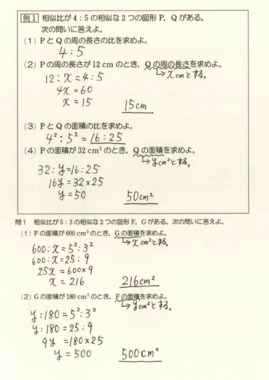 例1 相似比が4:5の相似な2つの図形P, Qがある。
次の問いに答えよ。
(1) PとQの周の長さの比を求めよ。
4:5
(2) Pの周の長さが12cmのとき, Qの周の長さを求めよ。
→xcmとする。
12:x=4:5
4x=60
x=15
15cm
(3) PとQの面積の比を求めよ。
4²:5²=16:25
(4) Pの面積が32cm²のとき, Qの面積を求めよ。
→ycm²とする。
32:y=16:25
16y=32×25
y=50
50cm²
問1 相似比が5:3の相似な2つの図形F, Gがある。次の問いに答えよ。
(1) Fの面積が600cm²のとき, Gの面積を求めよ。
→xcm²とする。
600:x=5²:3²
600:x=25:9
25x=600×9
x=216
216cm²
(2) Gの面積が180cm²のとき, Fの面積を求めよ。
→ycm²とする。
y:180=5²:3²
y:180=25:9
9y=180×25
y=500
500cm²